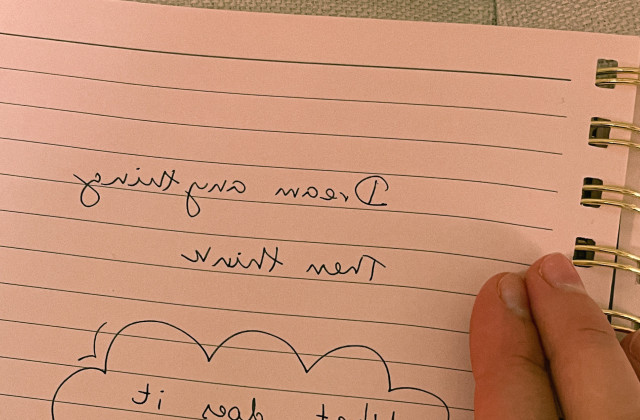 Dream anything
Then think
What does it